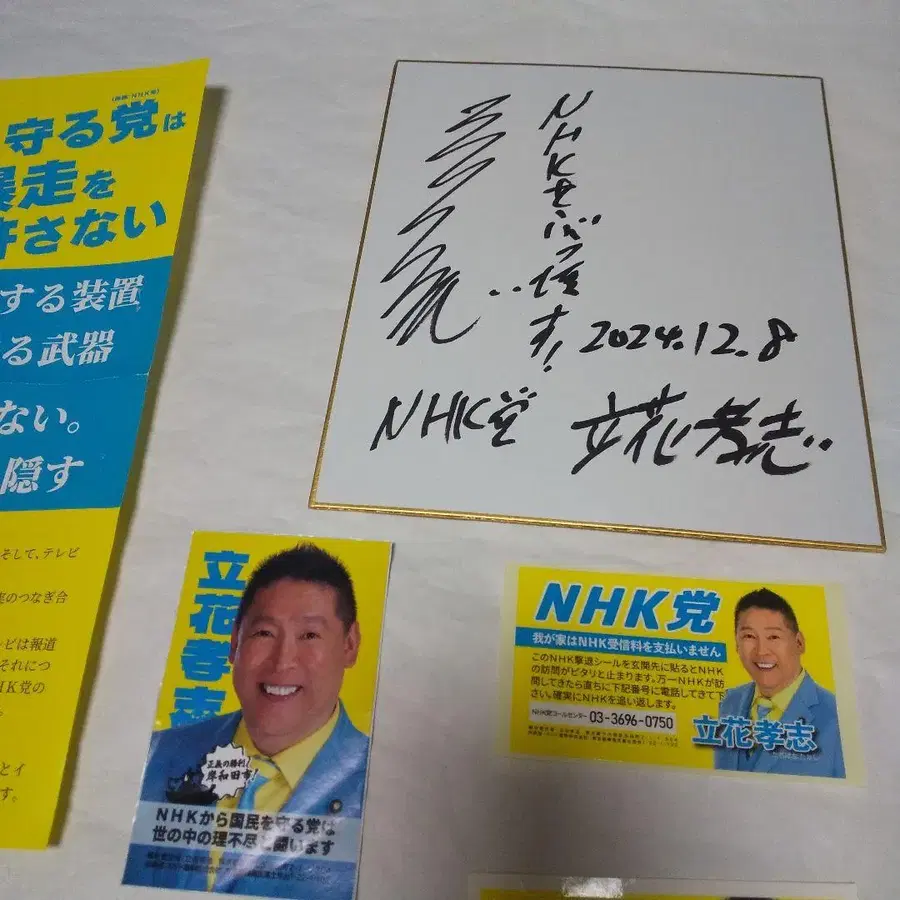 守る党は
暴走を
許さない
する装置
る武器
ない。
隠す
そして、テレビ
実のつなぎ合
レビは報道
それにつ
HK党の
とイ
す。
NHKをぶっ壊す!
2024.12.8
NHK党
立花孝志
立花孝志
正義の勝利!
岸和田市!
NHKから国民を守る党は
世の中の理不尽と闘います
NHK党
我が家はNHK受信料を支払いません
このNHK撃退シールを玄関先に貼るとNHK
の訪問がピタリと止まります。万一NHKが訪
問してきたら直ちに下記番号に電話してきて下
さい。確実にNHKを追い返します。
NHK党コールセンター 03-3696-0750
立花孝志